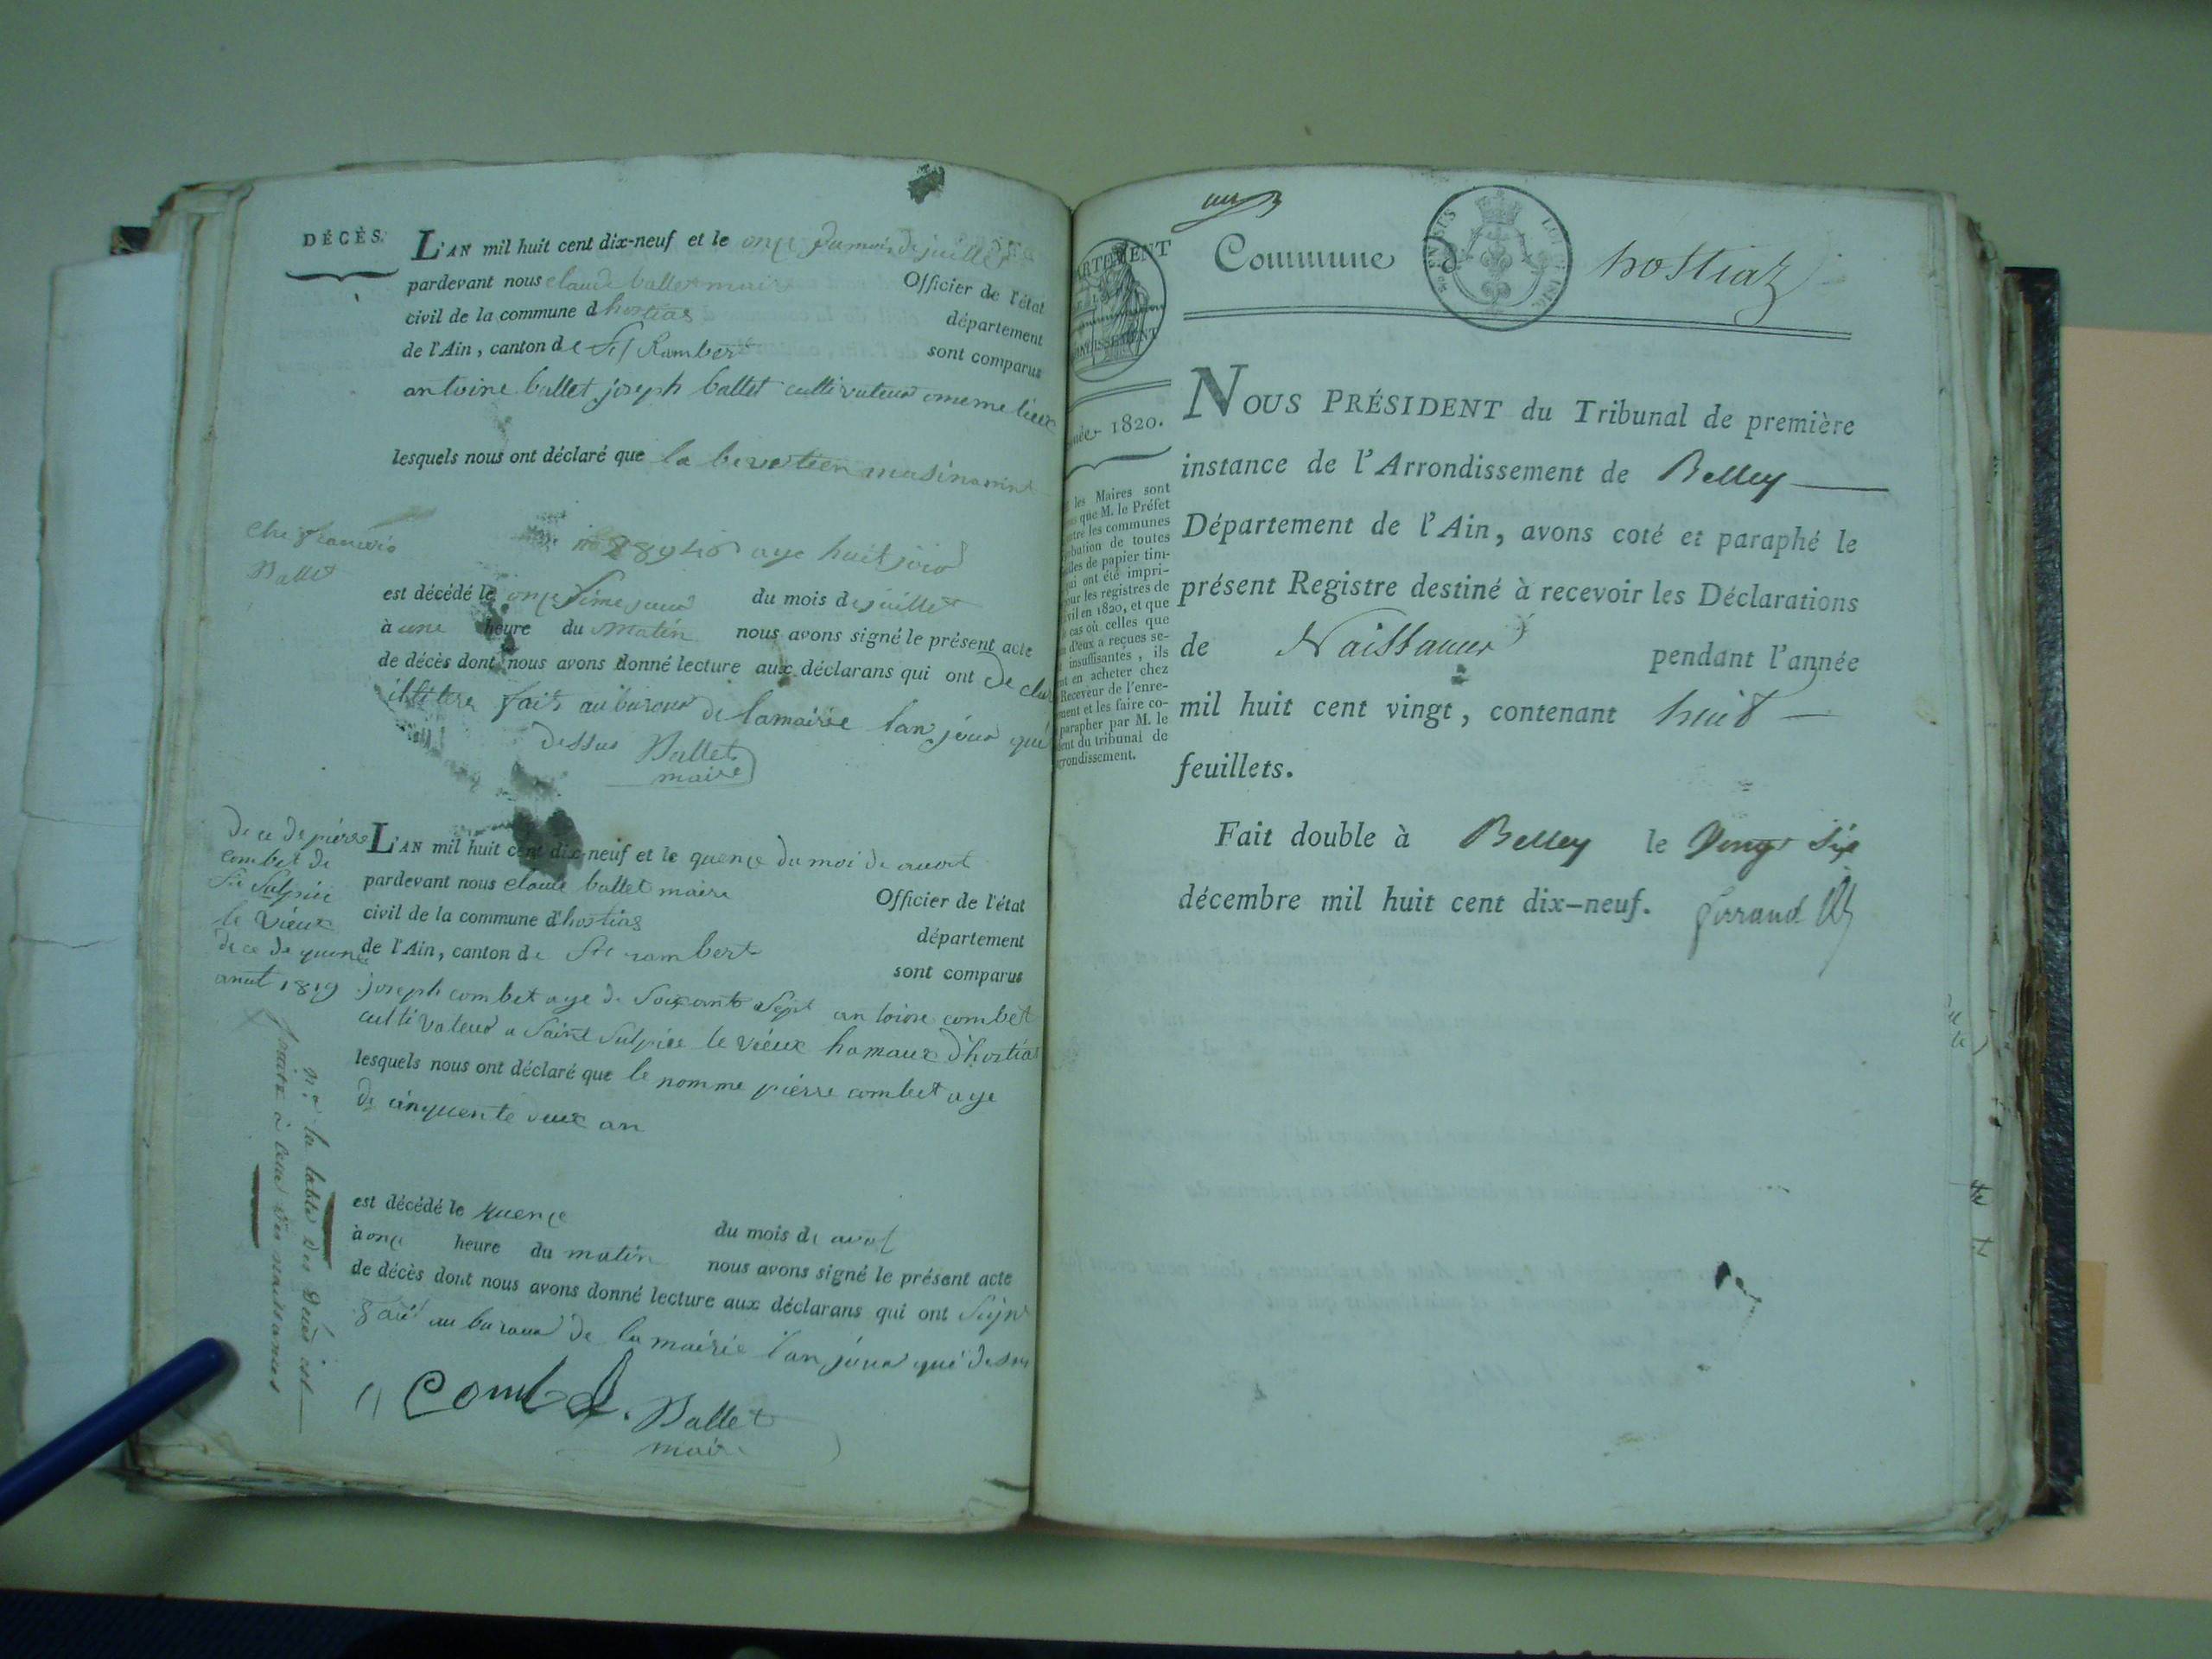 DÉCÈS.
L'AN mil huit cent dix-neuf et le onze du mois de juillet
pardevant nous claude ballet maire Officier de l'état
civil de la commune d hostias département
de l'Ain, canton de St Rambert sont comparus
antoine ballet joseph ballet cultivateur
lesquels nous ont déclaré que
che francois
Ballet
28946 age huit jour
est décédé le onzesime jour du mois de juillet
à une heure du matin nous avons signé le présent acte
de décès dont nous avons donné lecture aux déclarans qui ont de clare
illitere fait au bureau de lamairie lan jour que
dessus Ballet
maire
dece de pierre
combet de
St Sulpice
le vieux
dece de quence
aout 1819
L'AN mil huit cent dix-neuf et le quence du moi de
pardevant nous claude ballet maire Officier de l'état
civil de la commune d'hostias département
de l'Ain, canton de St rambert sont comparus
joseph combet age de Soixante Sept antoine combet
cultivateur a Saint Sulpice le vieux hamaux d'hostias
lesquels nous ont déclaré que le nomme pierre combet age
de cinquente deux an
est décédé le quence du mois de
à onze heure du matin nous avons signé le présent acte
de décès dont nous avons donné lecture aux déclarans qui ont Signe
fait au bureau de la mairie lan jour que dessus
Combet. Ballet
maire
la table des décès est
à celle des naissances
Commune d hostiaz
1820.
les Maires sont
que M. le Préfet
les communes
de toutes
de papier tim-
ont été impri-
les registres de
en 1820, et que
cas où celles que
d'eux a reçues se-
insuffisantes, ils
en acheter chez
Receveur de l'enre-
et les faire co-
parapher par M. le
du tribunal de
NOUS PRÉSIDENT du Tribunal de première
instance de l'Arrondissement de Belley
Département de l'Ain, avons coté et paraphé le
présent Registre destiné à recevoir les Déclarations
de Naissance pendant l'année
mil huit cent vingt, contenant huit
feuillets.
Fait double à Belley le Vingt Six
décembre mil huit cent dix-neuf.